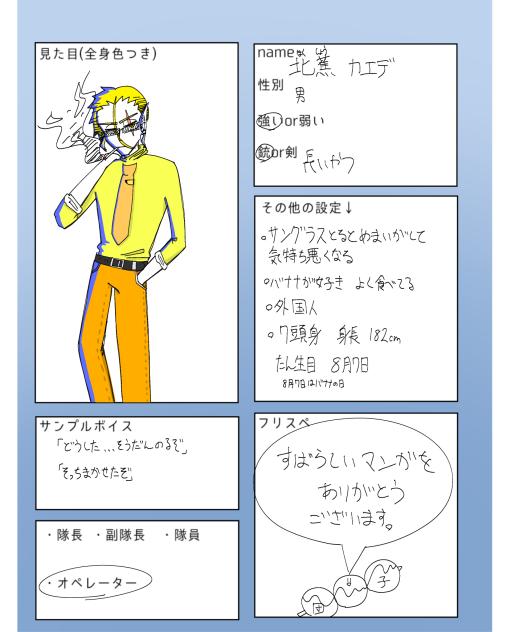 見た目(全身色つき)
name ほくしょう
北蕉 カエデ
性別
男
強いor弱い
銃or剣 長いやつ
その他の設定↓
○サングラスとるとめまいがして
気持ち悪くなる
○バナナが好き よく食べてる
○外国人
○7頭身 身長 182cm
たん生日 8月7日
8月7日はバナナの日
サンプルボイス
「どうした...そうだんのるぞ」
「そっちまかせたぞ」
・隊長 ・副隊長 ・隊員
・オペレーター
フリスペ
すばらしいマンガを
ありがとう
ございます。
団
子